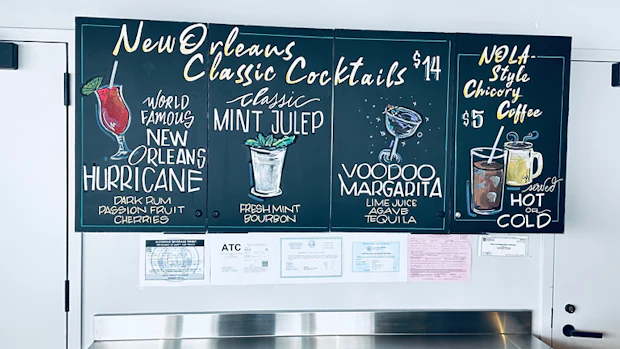 New Orleans
Classic Cocktails $14
WORLD
FAMOUS
NEW
ORLEANS
HURRICANE
DARK RUM
PASSION FRUIT
CHERRIES
classic
MINT JULEP
FRESH MINT
BOURBON
VOODOO
MARGARITA
LIME JUICE
AGAVE
TEQUILA
NOLA-
Style
Chicory
Coffee
$5
served
HOT
OR
COLD
ATC